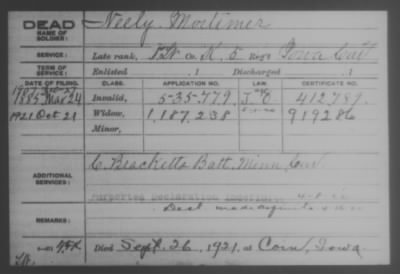 DEAD
NAME OF SOLDIER:
Neely, Mortimer
SERVICE:
Late rank, Co. K, 5 Reg't Iowa Cav
TERM OF SERVICE:
Enlisted , 1 Discharged , 1
DATE OF FILING. CLASS. APPLICATION NO. LAW. CERTIFICATE NO.
1885 Mar 24 Invalid, 535.779 412.
1921 Oct 21 Widow, 1,187,238 919286
Minor,
ADDITIONAL SERVICES:
C. Bracketts Batt. Minn. Cav.
Purported Declaration
REMARKS:
Died Sept. 26, 1921, at Coin, Iowa